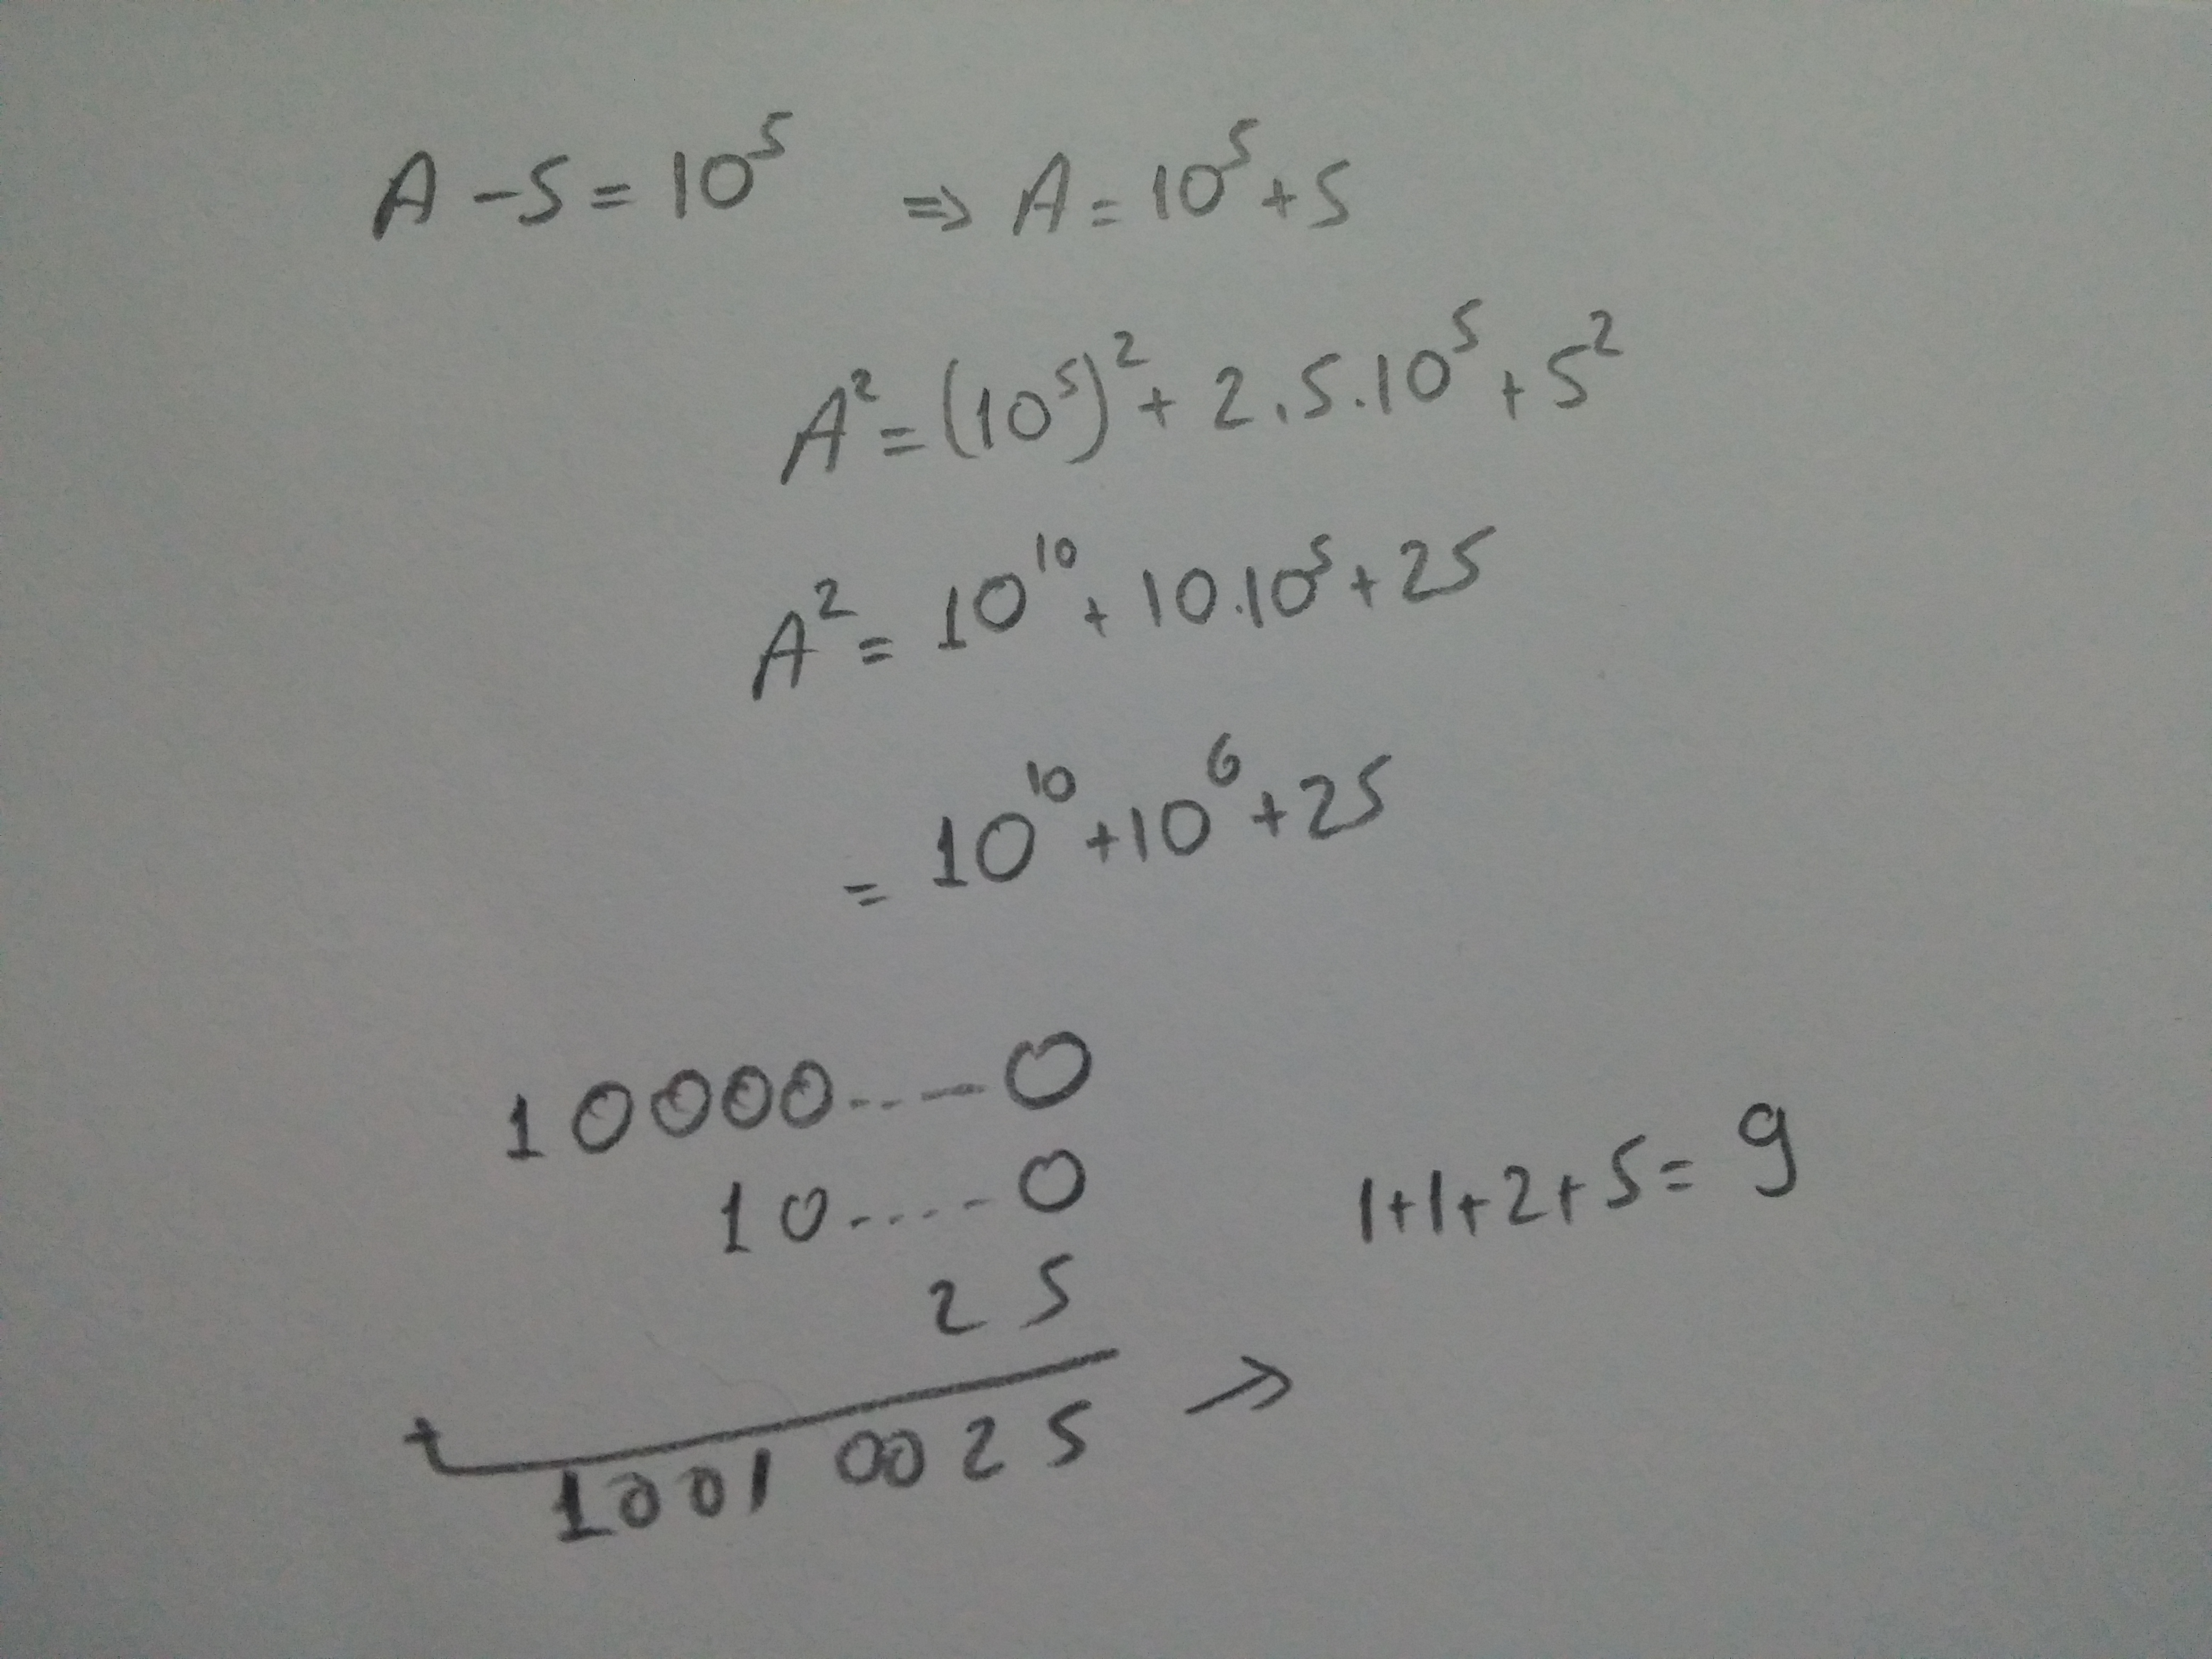 A - 5 = 10⁵ ⇒ A = 10⁵ + 5
A² = (10⁵)² + 2.5.10⁵ + 5²
A² = 10¹⁰ + 10.10⁵ + 25
= 10¹⁰ + 10⁶ + 25
10000...--0
10....-0
1+1+2+5= 9
25
+
10010025 ⇒